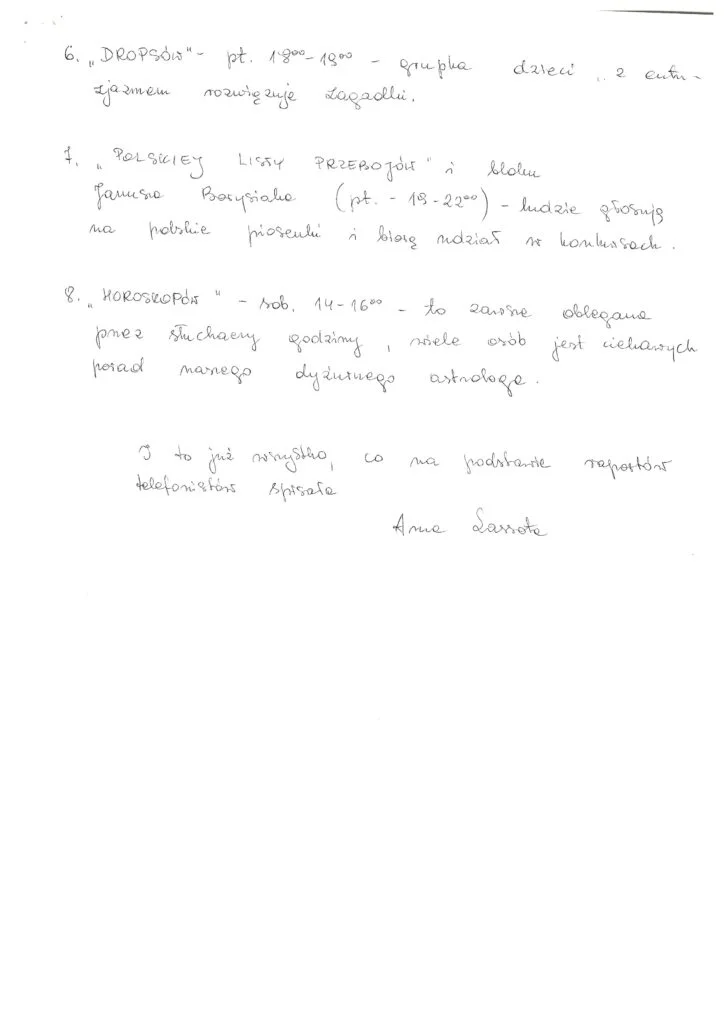 6. „DROPSÓW" - pt. 18⁰⁰-19⁰⁰ - grupka dzieci z entu-
zjazmem rozwiązuje zagadki.
7. „POLSKIEJ LISTY PRZEBOJÓW" i bloku
Janusza Borysiaka (pt. - 19-22⁰⁰) - ludzie głosują
na polskie piosenki i biorą udział w konkursach.
8. „HOROSKOPÓW" - sob. 14-16⁰⁰ - to zawsze oblegane
przez słuchaczy godziny, wiele osób jest ciekawych
porad naszego dyżurnego astrologa.
I to już wszystko, co na podstawie raportów
telefonistów spisała
Anna Lassota